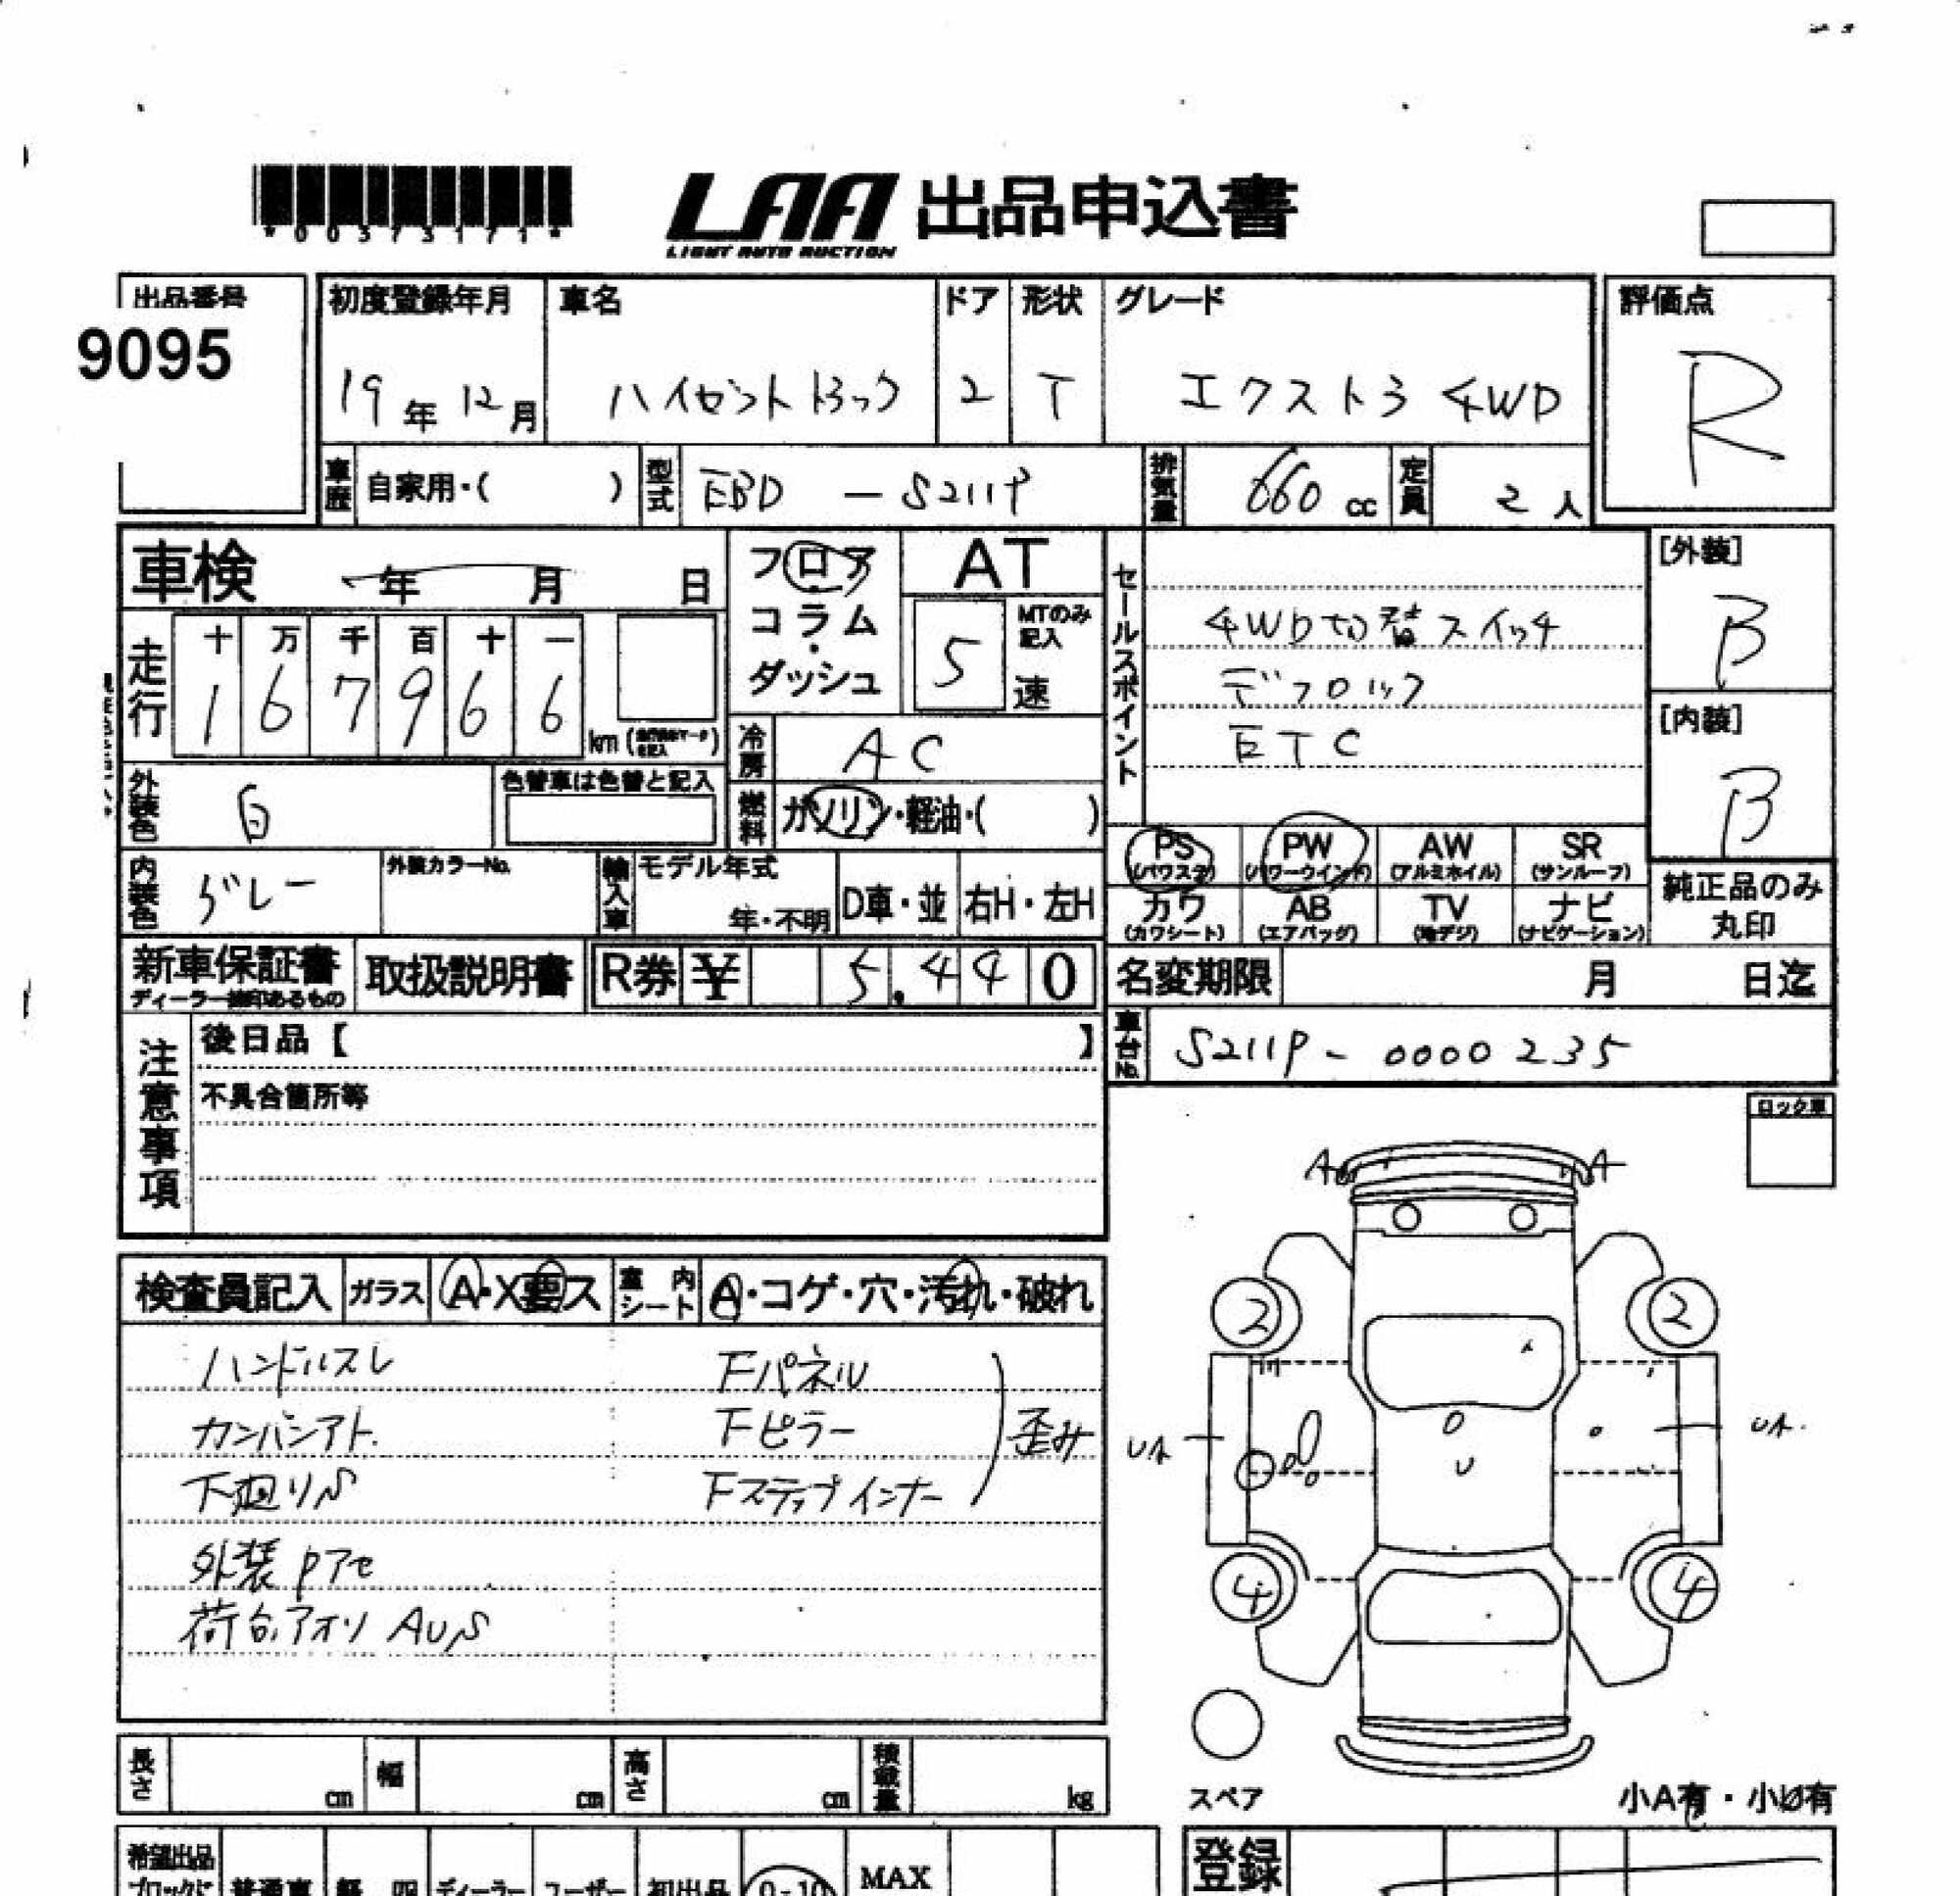 *00373171*
LAA 出品申込書
LIGHT AUTO AUCTION
出品番号
9095
初度登録年月 車名 ドア 形状 グレード 評価点
19年 12月 ハイゼットトラック 2 T エクストラ 4WD R
車歴 自家用・( ) 型式 EBD - S211P 排気量 660 cc 定員 2 人
車検 年 月 日
フロア コラム・ダッシュ
AT
5 MTのみ記入 速
走行 十 万 千 百 十 一
1 6 7 9 6 6 km
セールスポイント
4WD切替スイッチ
デフロック
ETC
[外装]
B
[内装]
B
冷房 AC
外装色 白 色替車は色替と記入
燃料 ガソリン・軽油・( )
内装色 グレー 外装カラーNo. 輸入車 モデル年式 年・不明 D車・並 右H・左H
PS (パワステ) PW (パワーウインド) AW (アルミホイル) SR (サンルーフ)
カワ (カワシート) AB (エアバッグ) TV (地デジ) ナビ (ナビゲーション)
純正品のみ丸印
新車保証書 取扱説明書 R券 ¥ 5.440
名変期限 月 日迄
車台No. S211P - 0000235
注意事項
後日品【 】
不具合箇所等
ロック車
検査員記入 ガラス A・X要ス 室内シート A・コゲ・穴・汚れ・破れ
ハンドルスレ Fパネル
カンバンアト. Fピラー 歪み
下廻りS Fステップインナー
外装Pアセ
荷台.アオリ AUS
A A
2 2
4 4
長さ cm 幅 cm 高さ cm 積載量 kg
スペア 小A有・小U有
希望出品 ブロックに 普通車 軽 四 ディーラー ユーザー 初出品 0-10 MAX
登録